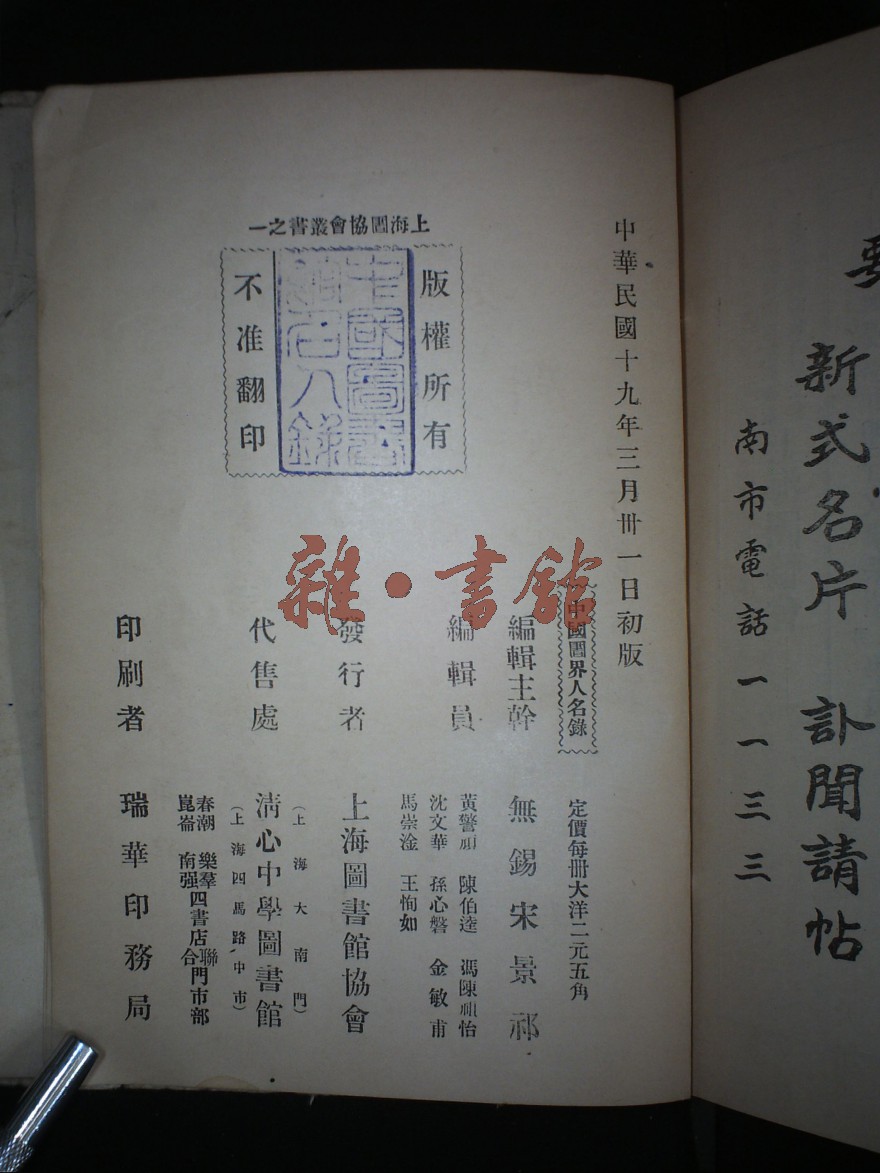 上海圕協會叢書之一
版權所有
中國圖書
館名人錄
不准翻印
中華民國十九年三月卅一日初版
中國圕界人名錄
定價每冊大洋二元五角
編輯主幹 無錫宋景祁
編輯員
黃警頑 陳伯逵 馮陳祖怡
沈文華 孫心磐 金敏甫
馬崇淦 王恂如
發行者 上海圖書館協會
代售處
(上海大南門)
清心中學圖書館
(上海四馬路中市)
春潮 樂羣四書店聯
崑崙 南强 合門市部
印刷者 瑞華印務局
雜·書館
新式名片 訃聞請帖
南市電話一一三三